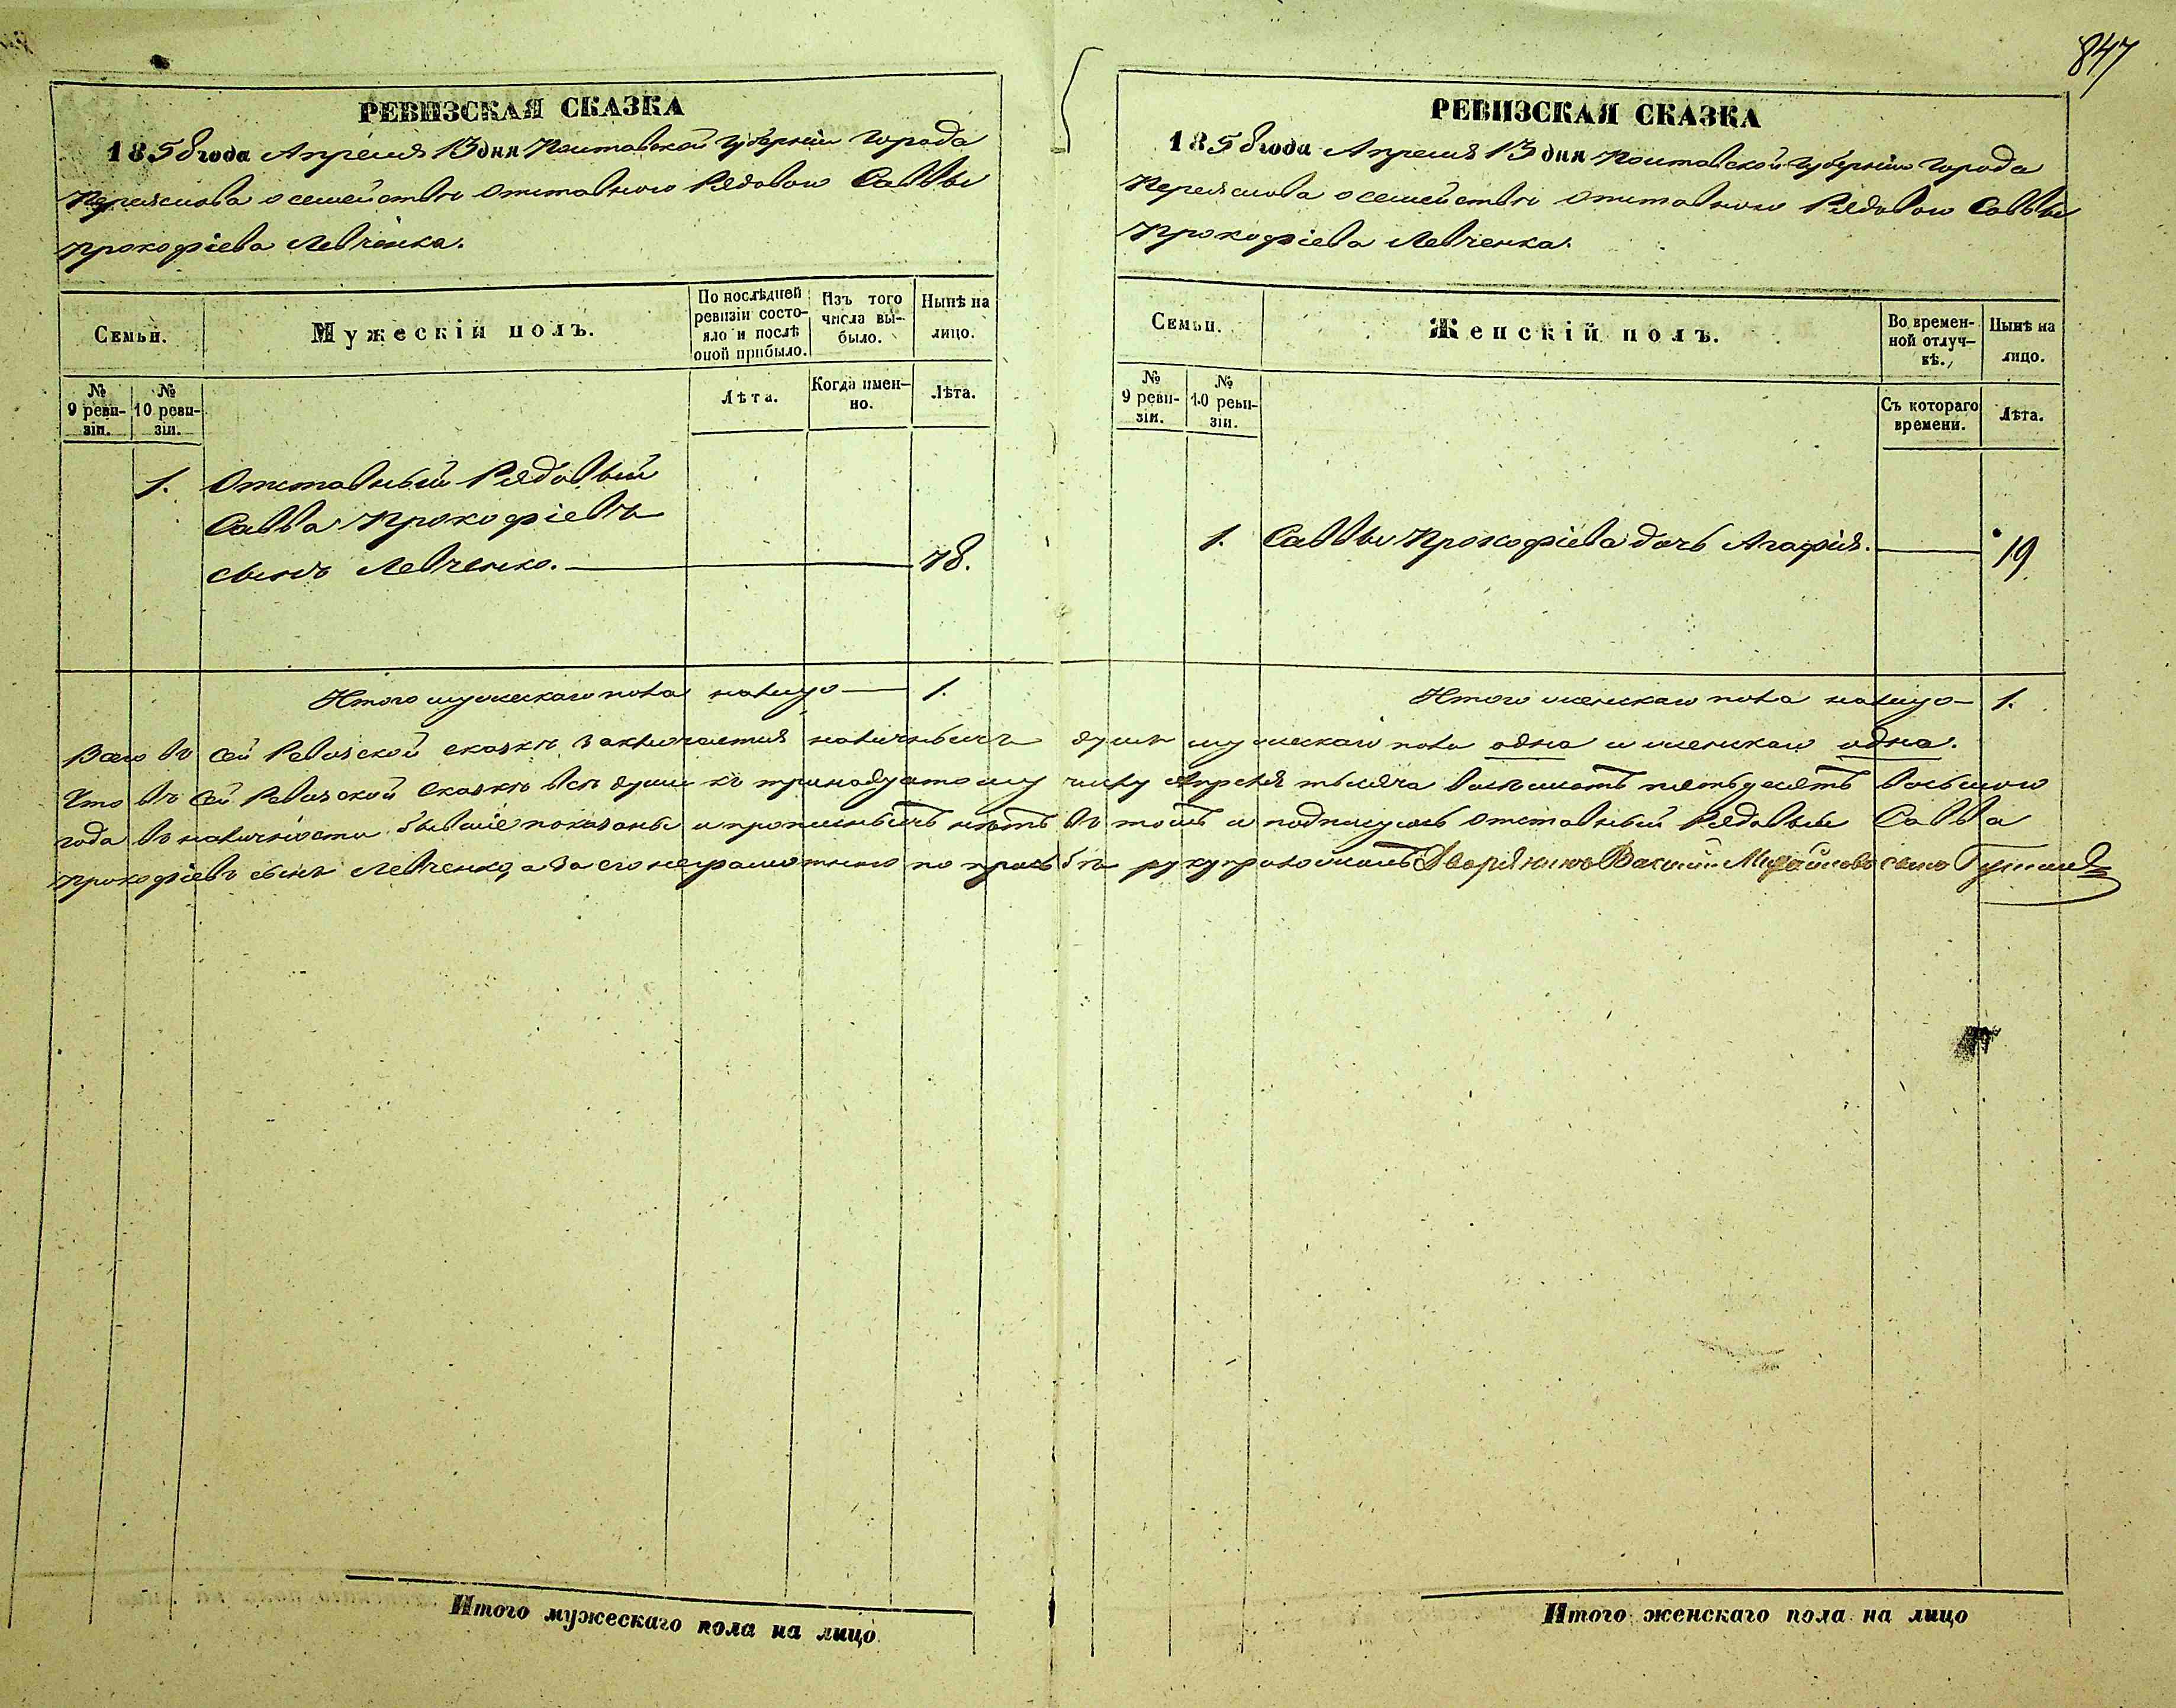 847
РЕВИЗСКАЯ СКАЗКА
1858 года Апреля 13 дня Полтавской Губерніи Города
Переяслова о семействѣ отставного Рядового Саввы
Прокофіева Левченка.
Семьи.
Мужескій полъ.
По послѣдней ревизіи состояло и послѣ оной прибыло.
Изъ того числа выбыло.
Нынѣ на лицо.
№ 9 ревизіи.
№ 10 ревизіи.
Лѣта.
Когда именно.
Лѣта.
1. Отставный Рядовый
Савва Прокофіевъ
сынъ Левченко. 78.
Итого мужескаго пола налицо 1.
РЕВИЗСКАЯ СКАЗКА
1858 года Апреля 13 дня Полтавской Губерніи Города
Переяслова о семействѣ отставного Рядового Саввы
Прокофіева Левченка.
Семьи.
Женскій полъ.
Во временной отлучкѣ.
Нынѣ на лицо.
№ 9 ревизіи.
№ 10 ревизіи.
Съ котораго времени.
Лѣта.
1. Саввы Прокофіева дочь Агафія. 19
Итого женскаго пола налицо 1.
Всего въ сей Ревизской сказкѣ заключается наличныхъ душъ мужескаго пола одна и женскаго одна.
Что въ сей Ревизской сказкѣ всѣ души къ тринадцатому числу Апреля тысяча восемьсотъ пятьдесятъ восьмого
года въ наличности бывшіе показаны и прописныхъ нѣтъ въ томъ и подписуюсь отставный Рядовый Савва
Прокофіевъ сынъ Левченко, а за его неграмотного по прозьбѣ руку приложилъ Дворянинъ Михайловъ сынъ
Итого мужескаго пола на лицо
Итого женскаго пола на лицо